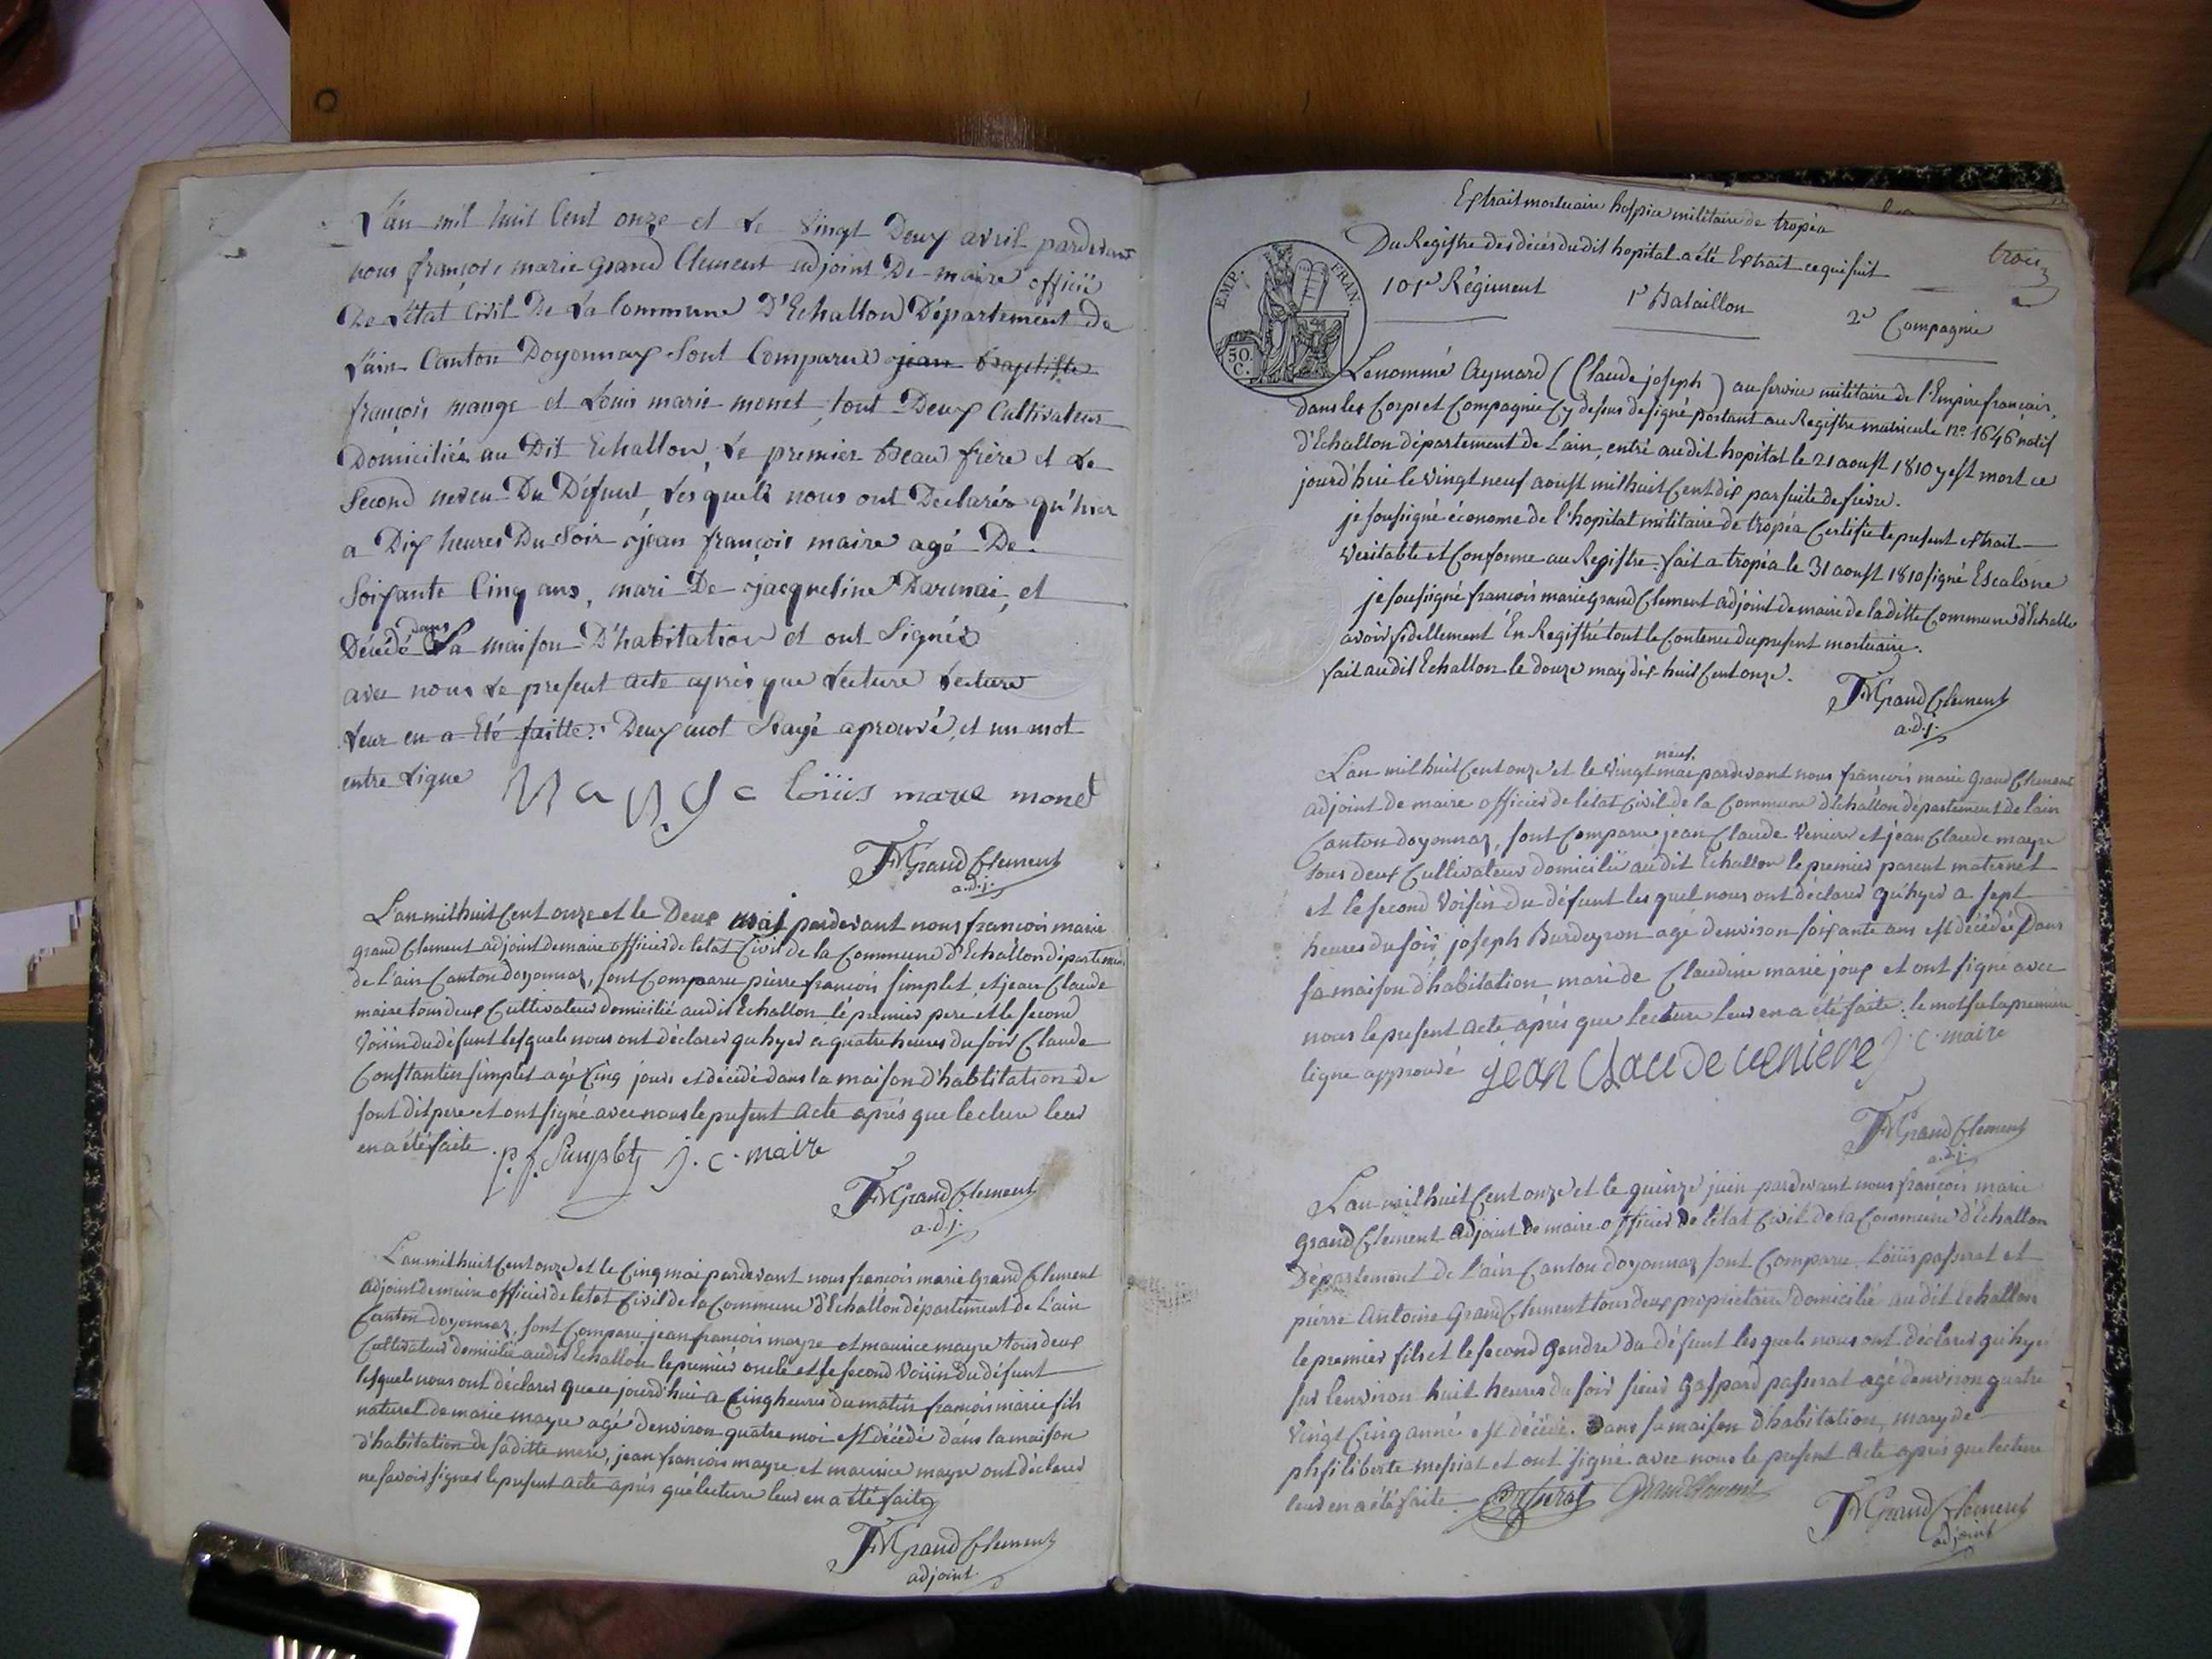 L'an mil huit Cent onze et Le Vingt Deux avril pardevant
nous françois marie grand Clement adjoint De maire officié
De L'état Civil De La Commune D'Echallon Département de
L'ain Canton Doyonnax Sont Comparus jean Baptiste
françois mange et Louis marie monet, tout Deux Cultivateur
Domiciliés au Dit Echallon, Le premier Beau frère et Le
Second neveu Du Défunt, Lesquels nous ont Declarés qu'hier
a Dix heures Du Soir jean françois maire agé De
Soixante Cinq ans, mari De jacqueline et
Décédé dans Sa maison D'habitation et ont Signés
avec nous Le present acte après que Lecture Lecture
Leur en a Eté faitte. Deux mot Rayé aprouvé, et un mot
entre Ligne Mange Loüis marie monet
FM Grand Clement
a.d.j.
L'an mil huit Cent onze et le Deux mai pardevant nous francois marie
grand Clement adjoint de maire officier de letat Civil de la Commune d'Echallon départemen
de l'ain Canton doyonnax, sont Comparu pierre francois simplet, et jean Claude
maire tous deux Cultivateur domicilié audit Echallon le premier pere et le second
Voisin du défunt lesquels nous ont déclarer qu'hyer a quatre heures du soir Claude
Constantin simplet agé Cinq jours et décédé dans la maison d'habitation de
sont dit pere et ont signé avec nous le present acte après que lecture leur
en a été faite. p. f. Simplet J. C. maire
FM Grand Clement
a.d.j.
L'an mil huit Cent onze et le Cinq mai pardevant nous francois marie Grand Clement
adjoint de maire officier de letat Civil de la Commune d'Echallon département de L'ain
Canton doyonnax, sont Comparu jean francois mayre et maurice mayre tous deux
Cultivateur domicilié audit Echallon le premier oncle et le second Voisin du défunt
lesquels nous ont déclarer que ce jourd'hui a Cinq heures du matin francois marie fils
naturel de marie mayre agé denviron quatre moi est décédé dans la maison
d'habitation de saditte mere, jean francois mayre et maurice mayre ont déclarer
ne savoir signer le present acte après qué lecture leur en a été faite
FM Grand Clement
adjoint
Extrait mortuaire hospice militaire de tropéa
trois
Du Registre des décès du dit hopital a été Extrait ce qui suit
101e Régiment 1r Bataillon 2e Compagnie
EMP. FRAN.
50.
C.
Le nommé Aymard (Claude joseph) au service militaire de l'Empire français,
dans les Corps et Compagnie Cy dessus designé portant au Registre matricule no. 1646 natif
d'Echallon département de Lain, entré audit hopital le 21 aoust 1810 y est mort ce
jourd'hui le vingt neuf aoust mil huit Cent dix par suite de fievre.
je soussigné économe de l'hopital militaire de tropéa Certifie le present extrait
veritable et Conforme au Registre. fait a tropéa le 31 aoust 1810 signé Escalone
je soussigné francois marie grand Clement adjoint de maire de laditte Commune d'Echallo
avoir fidellement En Registré tout le Contenu du present mortuaire.
fait audit Echallon le douze may dix-huit Cent onze.
FM Grand Clement
a.d.j.
L'an mil huit Cent onze et le vingt neuf mai pardevant nous francois marie Grand Clement
adjoint de maire officier de létat Civil de la Commune d'Echallon département de lain
Canton doyonnax, sont Comparu jean Claude Veniere et jean Claude mayre
tous deux Cultivateur domicilié audit Echallon le premier parent maternel
et le second Voisin du défunt lesquel nous ont déclarer qu'hyer a sept
heures du soir joseph Burdeyron agé denviron soixante ans est décédée Dans
sa maison d'habitation, mari de Claudine marie joux et ont signé avec
nous le present acte après que lecture leur en a été faite. le mot sur la premiere
ligne approuvé jean Claude veniere J. C. maire
FM Grand Clement
a.d.j.
L'an mil huit Cent onze et le quinze juin pardevant nous francois marie
grand Clement adjoint de maire officier de létat Civil de la Commune d'Echallon
Département de l'ain Canton doyonnax sont Comparu Loüis passerat et
pierre Antoine Grand Clement tous deux proprietaire domicilié audit Echallon
le premier fils et le second Gendre du défunt lesquels nous ont déclarer qu'hye
sur lenviron huit heures du soir sieur Gaspard passerat agé denviron quatre
Vingt Cinq anné est décédé. Dans sa maison d'habitation, mary de
messiat et ont signé avec nous le present acte après que lecture
leur en a été faite Passerat Grand Clement
FM Grand Clement
adjoint